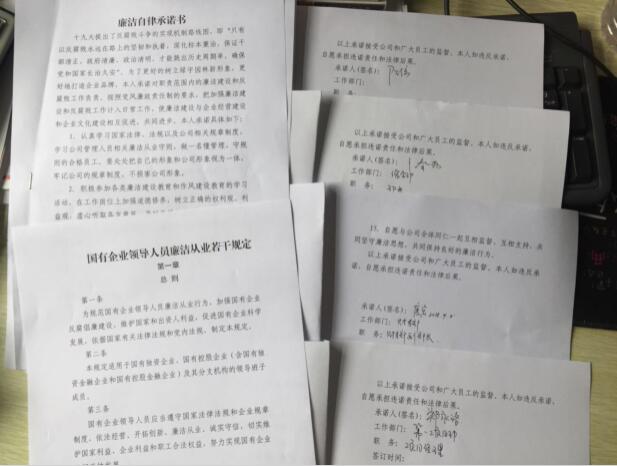 廉洁自律承诺书
十九大提出了反腐败斗争的实现机制路线图，即“只有
以反腐败永远在路上的坚韧和执着，深化标本兼治，保证干
部清正、政府清廉、政治清明，才能跳出历史周期率，确保
党和国家长治久安”。为了更好的树立绿宇园林新形象，更
好地打造企业品牌，本人承诺对职责范围内的廉洁建设和反
腐败工作负责，按照党风廉政责任制的要求，把加强廉洁建
设和反腐败工作计入日常工作，使廉洁建设与企业经营建设
和企业文化建设相互促进、共同进步。本人承诺具体如下：
1、认真学习国家法律、法规以及公司相关规章制度，
学习公司管理人员相关廉洁从业守则，做一名懂管理、守规
则的合格员工，要处处把自己的形象和公司形象视为一体，
牢记公司的规章制度，不损害公司形象。
2、积极参加各类廉洁建设教育和作风建设教育的学习
活动，在工作岗位上加强道德修养，树立正确的权利观、利
国有企业领导人员廉洁从业若干规定
第一章
总 则
第一条
为规范国有企业领导人员廉洁从业行为，加强国有企业
反腐倡廉建设，维护国家和出资人利益，促进国有企业科学
发展，依据国家有关法律法规和党内法规，制定本规定。
第二条
本规定适用于国有独资企业、国有控股企业（含国有独
资金融企业和国有控股金融企业）及其分支机构的领导班子
成员。
第三条
国有企业领导人员应当遵守国家法律法规和企业规章
制度，依法经营、开拓创新、廉洁从业、诚实守信，切实维
护国家利益、企业利益和职工合法权益，努力实现国有企业
以上承诺接受公司和广大员工的监督，本人如违反承诺，
自愿承担违诺责任和法律后果。
承诺人(签名)：
工作部门：
以上承诺接受公司和广大员工的监督，本人如违反承诺，
自愿承担违诺责任和法律后果。
承诺人(签名)：
工作部门：
职 务：
15、自愿与公司全体同仁一起互相监督、互相支持、共
同坚守廉洁思想，共同保持良好的廉洁行为。
以上承诺接受公司和广大员工的监督，本人如违反承
诺，自愿承担违诺责任和法律后果。
承诺人(签名)：
工作部门：
职 务：
以上承诺接受公司和广大员工的监督，本人如违反承诺，
自愿承担违诺责任和法律后果。
承诺人(签名)：
工作部门：
职 务：
签订时间：